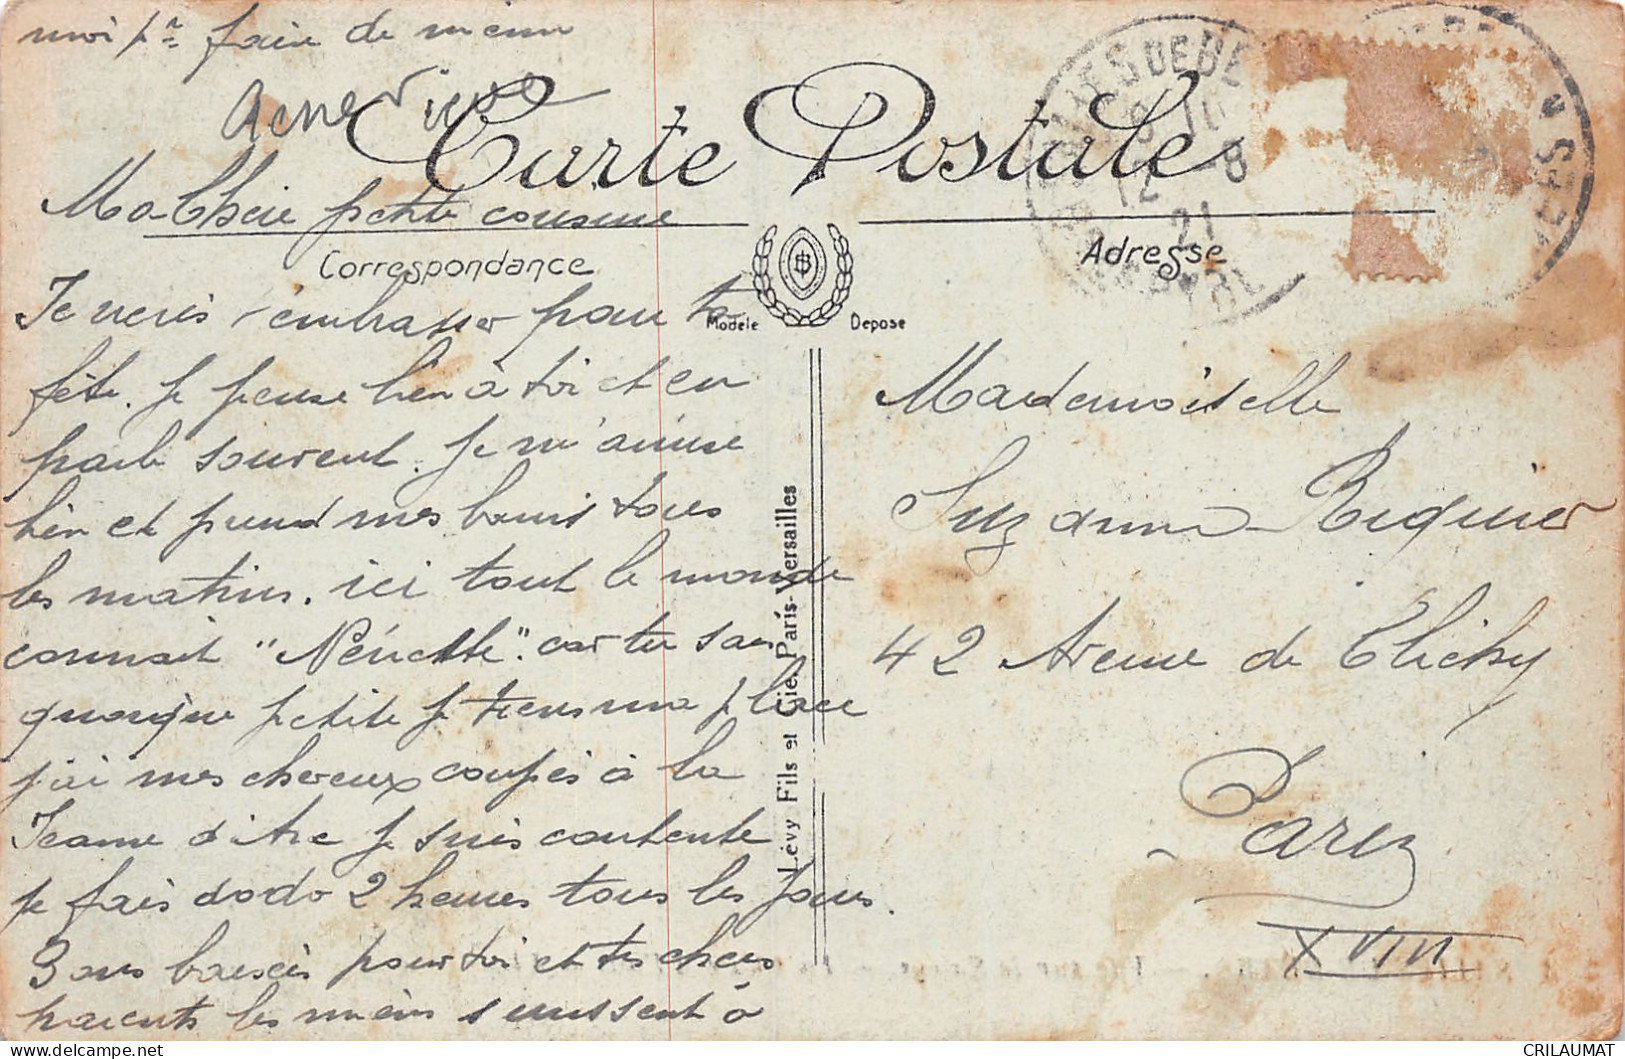 moi pr faire de mieux
Carte Postale
Correspondance
Adresse
Modèle
Déposé
Ma Chère petite cousine
Je viens t'embrasser pour ta
fête. Je pense bien à toi et en
parle souvent. Je m'amuse
bien et prend mes bains tous
les matins. ici tout le monde
connait "Nénette". car tu sais
quoique petite je tiens ma place
j'ai mes cheveux coupés à la
Jeanne d'Arc je suis contente
je fais dodo 2 heures tous les jours.
Bons baisers pour toi et tes chers
parents les miens s'unissent à
Lévy Fils et Cie, Paris-Versailles
Mademoiselle
Suzanne Riquier
42 Avenue de Clichy
Paris
XVIII
12 8
21
CRILAUMAT